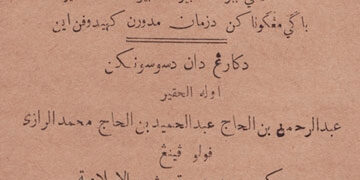 باݢي مڠݢوناكن دزمان مدورن كهيدوفن اين
دكارڠ دان دسوسونكن
اوله الحقير
عبدالرحمن بن الحاج عبدالحميد بن الحاج محمد الرازي
فولو ڤينڠ